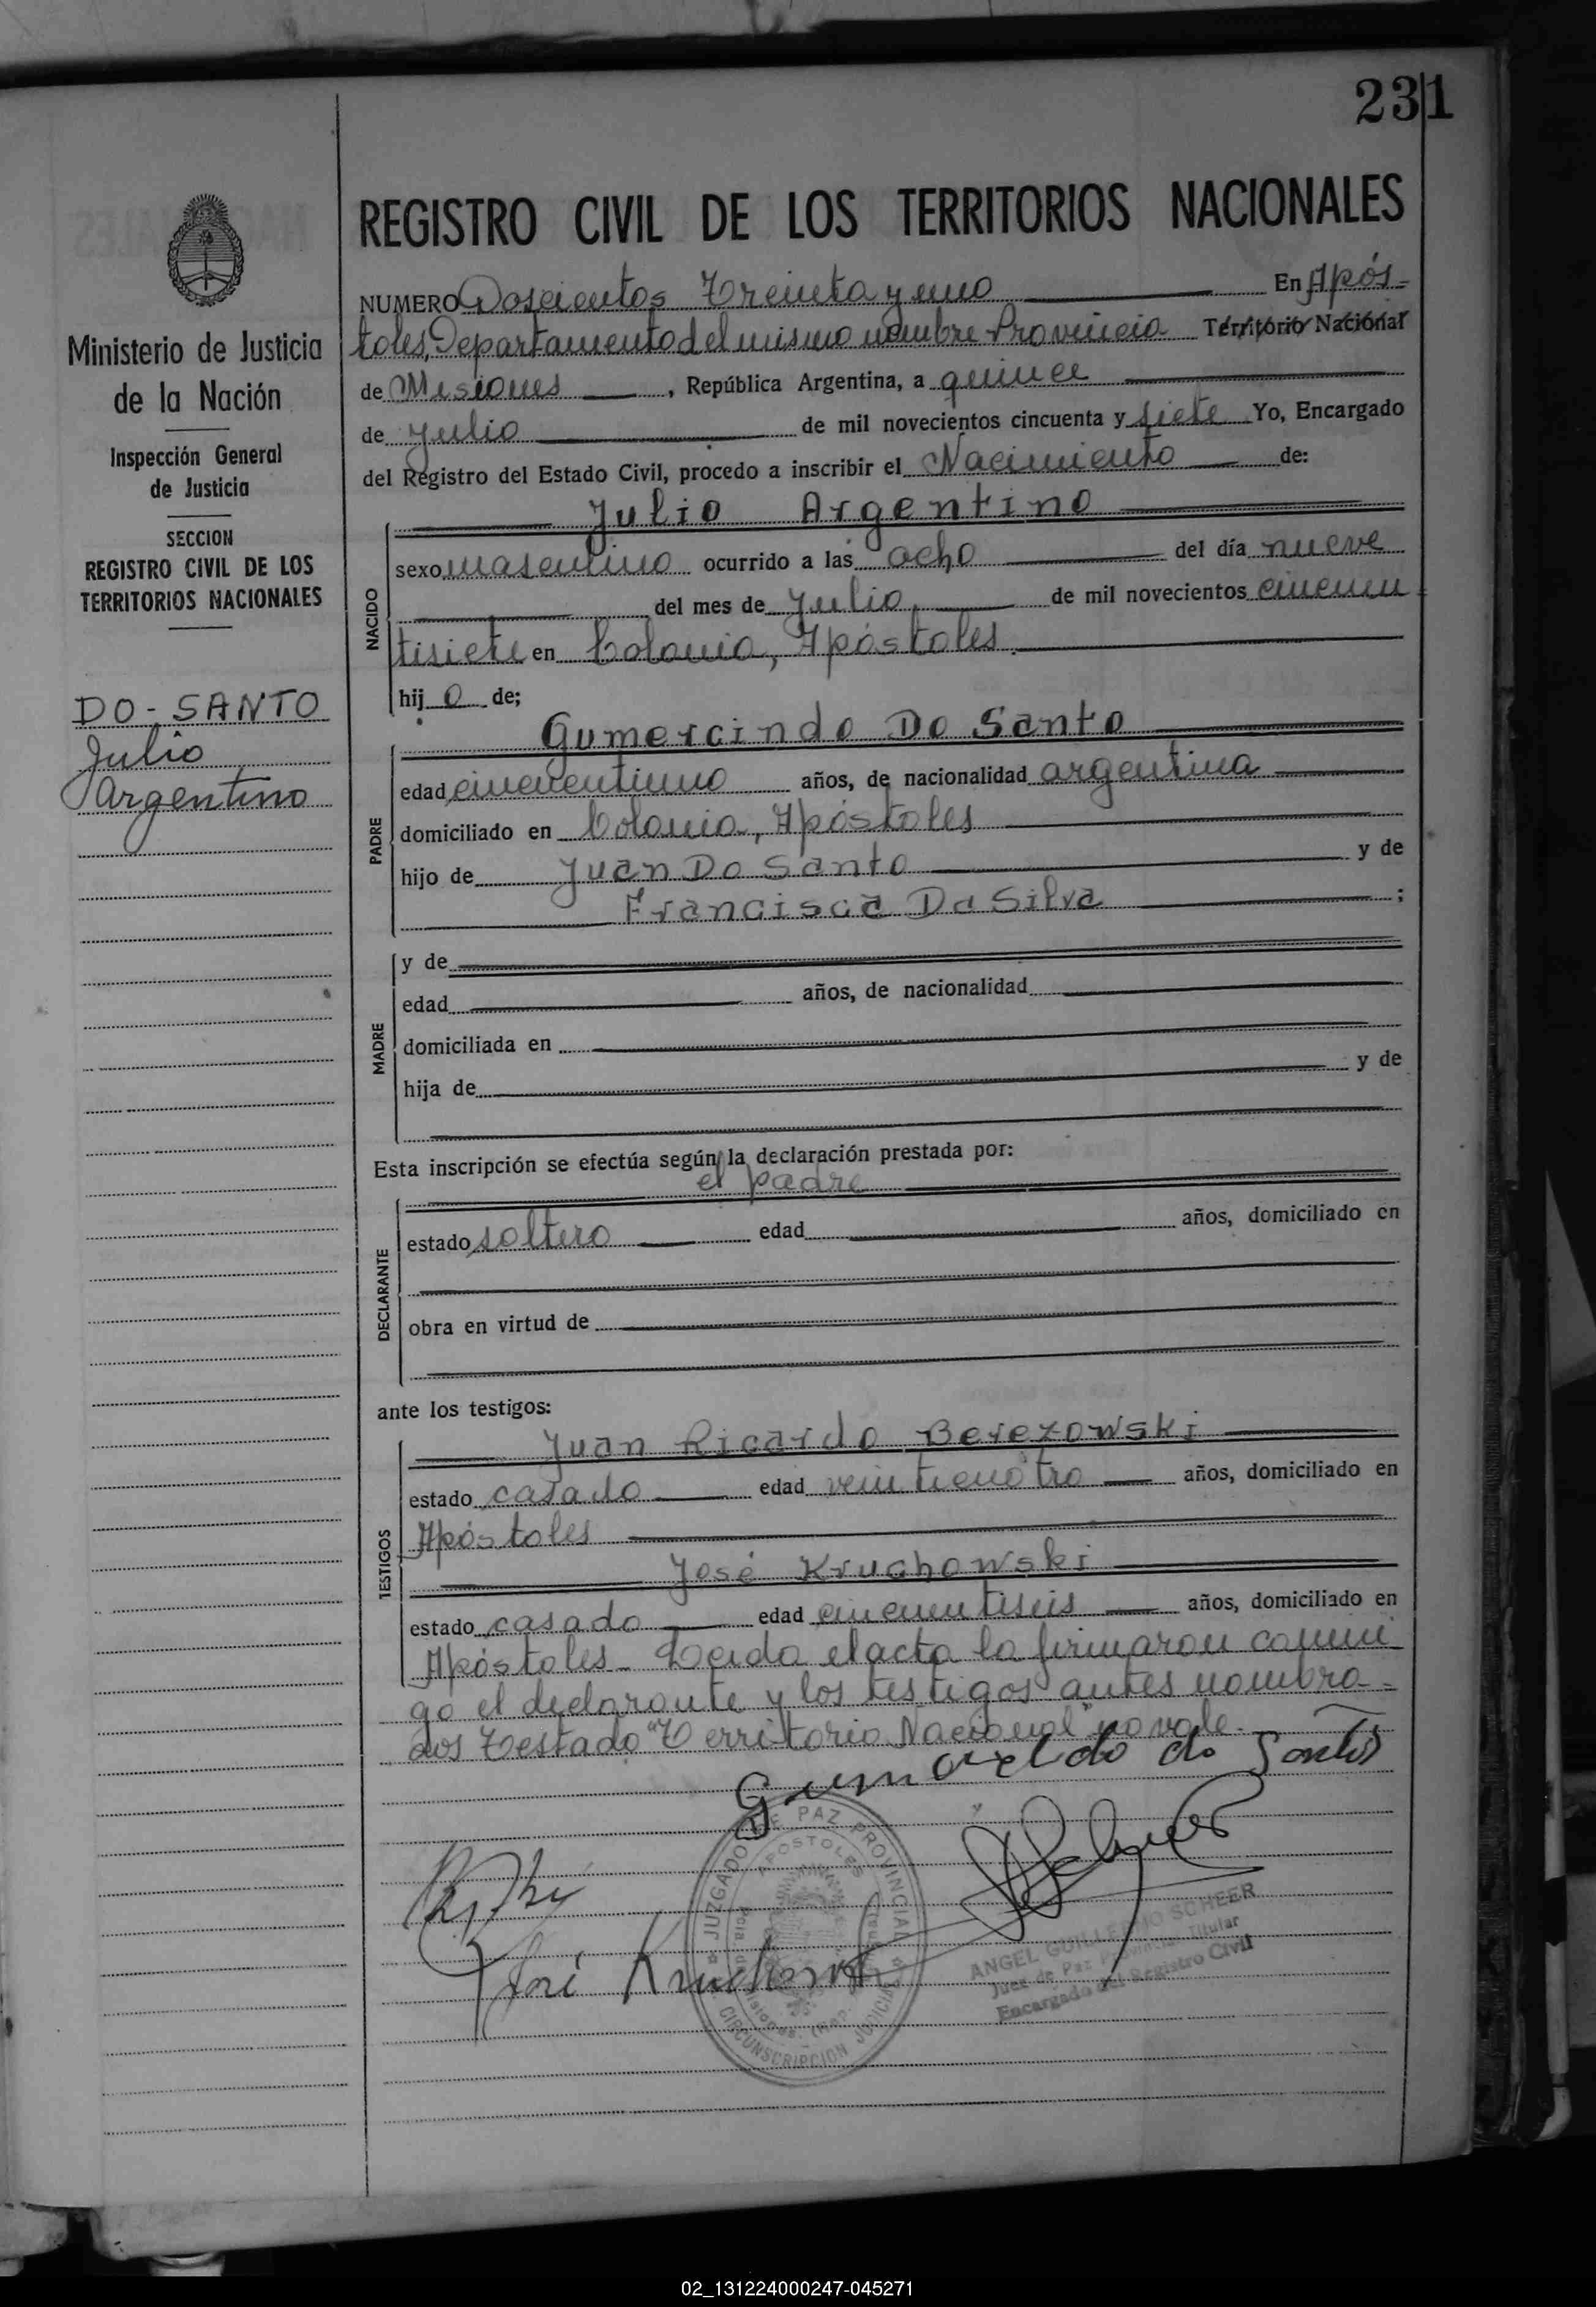 231
REGISTRO CIVIL DE LOS TERRITORIOS NACIONALES
Ministerio de Justicia
de la Nación
Inspección General
de Justicia
SECCION
REGISTRO CIVIL DE LOS
TERRITORIOS NACIONALES
DO-SANTO
Julio
Argentino
NUMERO Doscientos Treinta y uno En Após-
toles, Departamento del mismo nombre Provincia Territorio Nacional
de Misiones, República Argentina, a quince
de Julio de mil novecientos cincuenta y siete Yo, Encargado
del Registro del Estado Civil, procedo a inscribir el Nacimiento de:
Julio Argentino
NACIDO
sexo masculino ocurrido a las ocho del día nueve
del mes de Julio, de mil novecientos cincuen
tisiete en Colonia, Apóstoles.
hijo de;
Gumercindo Do Santo
PADRE
edad cincuentiuno años, de nacionalidad argentina
domiciliado en Colonia, Apóstoles
hijo de Juan Do Santo y de
Francisca Da Silva ;
MADRE
y de
edad años, de nacionalidad
domiciliada en
hija de y de
Esta inscripción se efectúa según la declaración prestada por:
el padre
DECLARANTE
estado soltero edad años, domiciliado en
obra en virtud de
ante los testigos:
Juan Ricardo Berezowski
TESTIGOS
estado casado edad veinticuatro años, domiciliado en
Apóstoles
José Kruchowski
estado casado edad cincuentiseis años, domiciliado en
Apóstoles- Leida el acta la firmaron conmi
go el declarante y los testigos antes nombra-
dos Testado "Territorio Nacional" no vale-
do Santos
José
JUZGADO DE PAZ PROVINCIAL
APOSTOLES
CIRCUNSCRIPCION JUDICIAL
ANGEL GUILLERMO SCHEER
Juez de Paz Provincial Titular
Encargado del Registro Civil
02_131224000247-045271